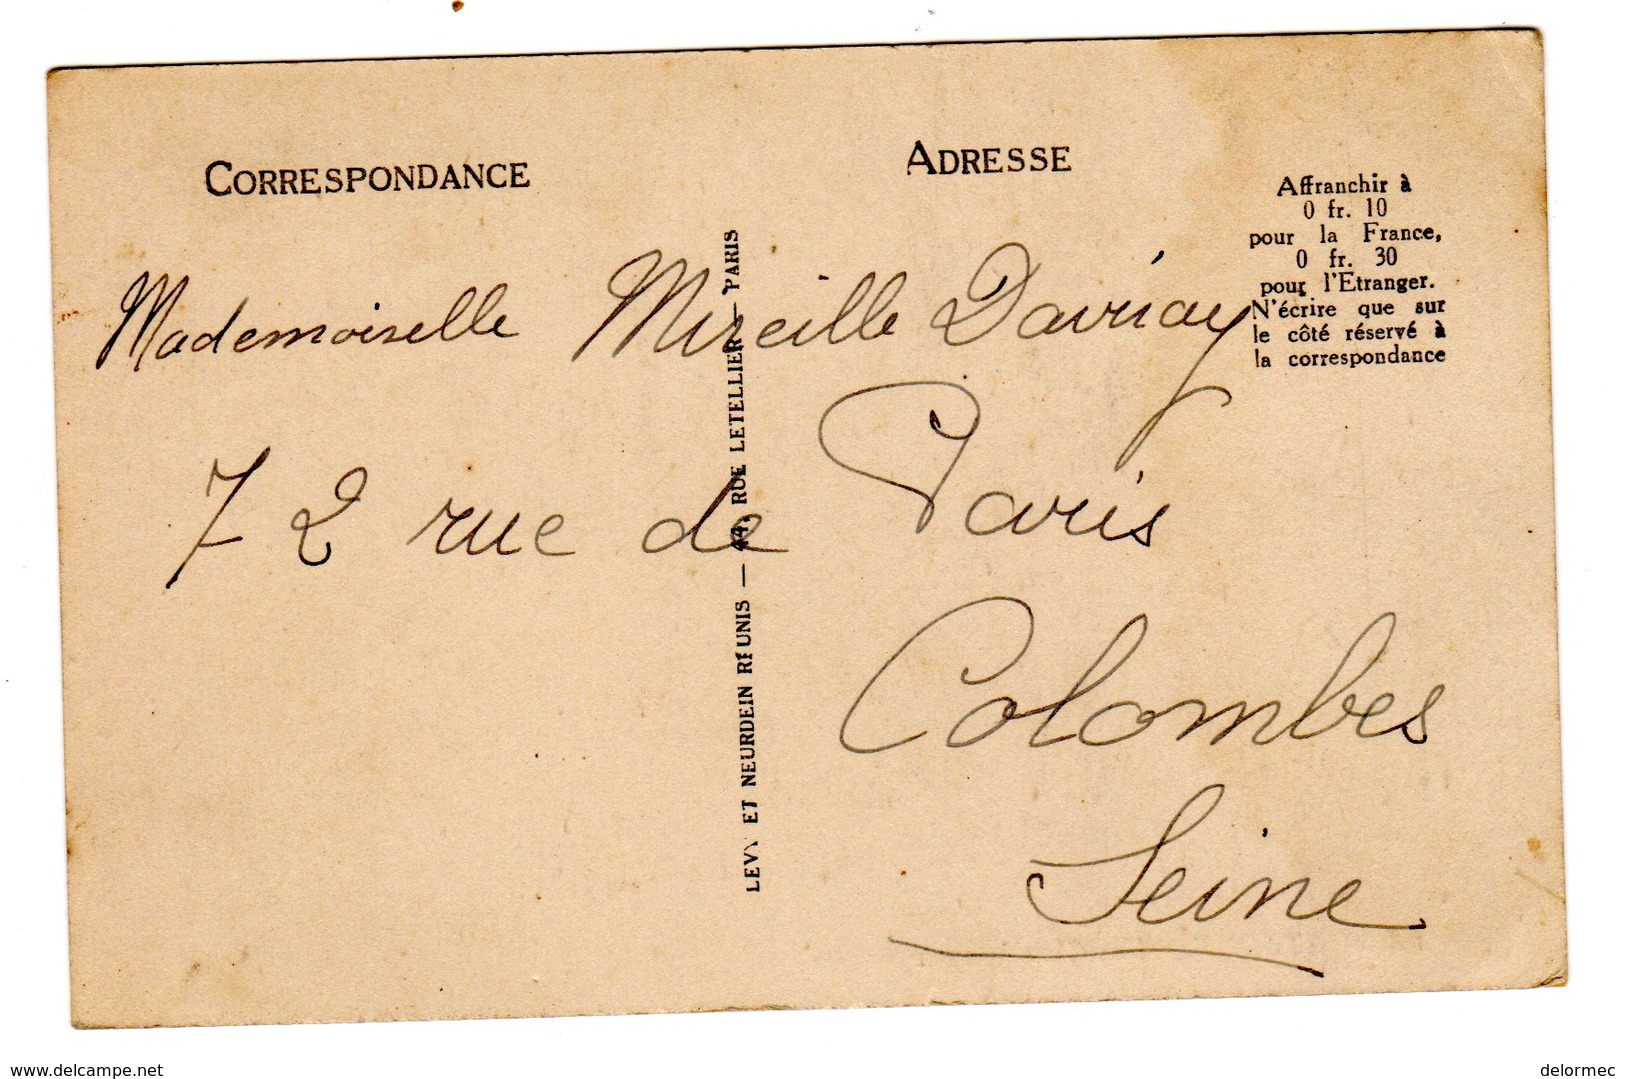 CORRESPONDANCE
ADRESSE
Affranchir à
0 fr. 10
pour la France,
0 fr. 30
pour l'Etranger.
N'écrire que sur
le côté réservé à
la correspondance
Mademoiselle Mireille Davriay
72 rue de Paris
Colombes
Seine
LEVY ET NEURDEIN RÉUNIS — 44, RUE LETELLIER — PARIS
www.delcampe.net
delormec